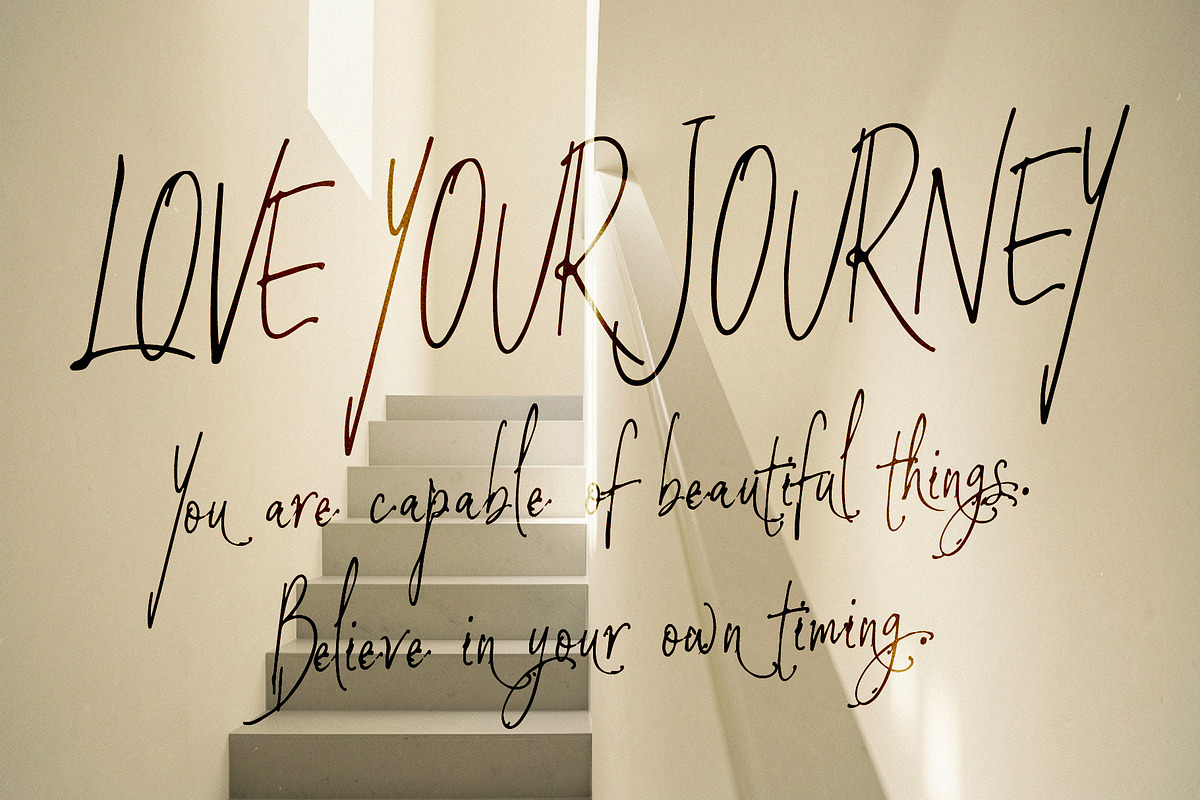 LOVE YOUR JOURNEY
You are capable of beautiful things.
Believe in your own timing.